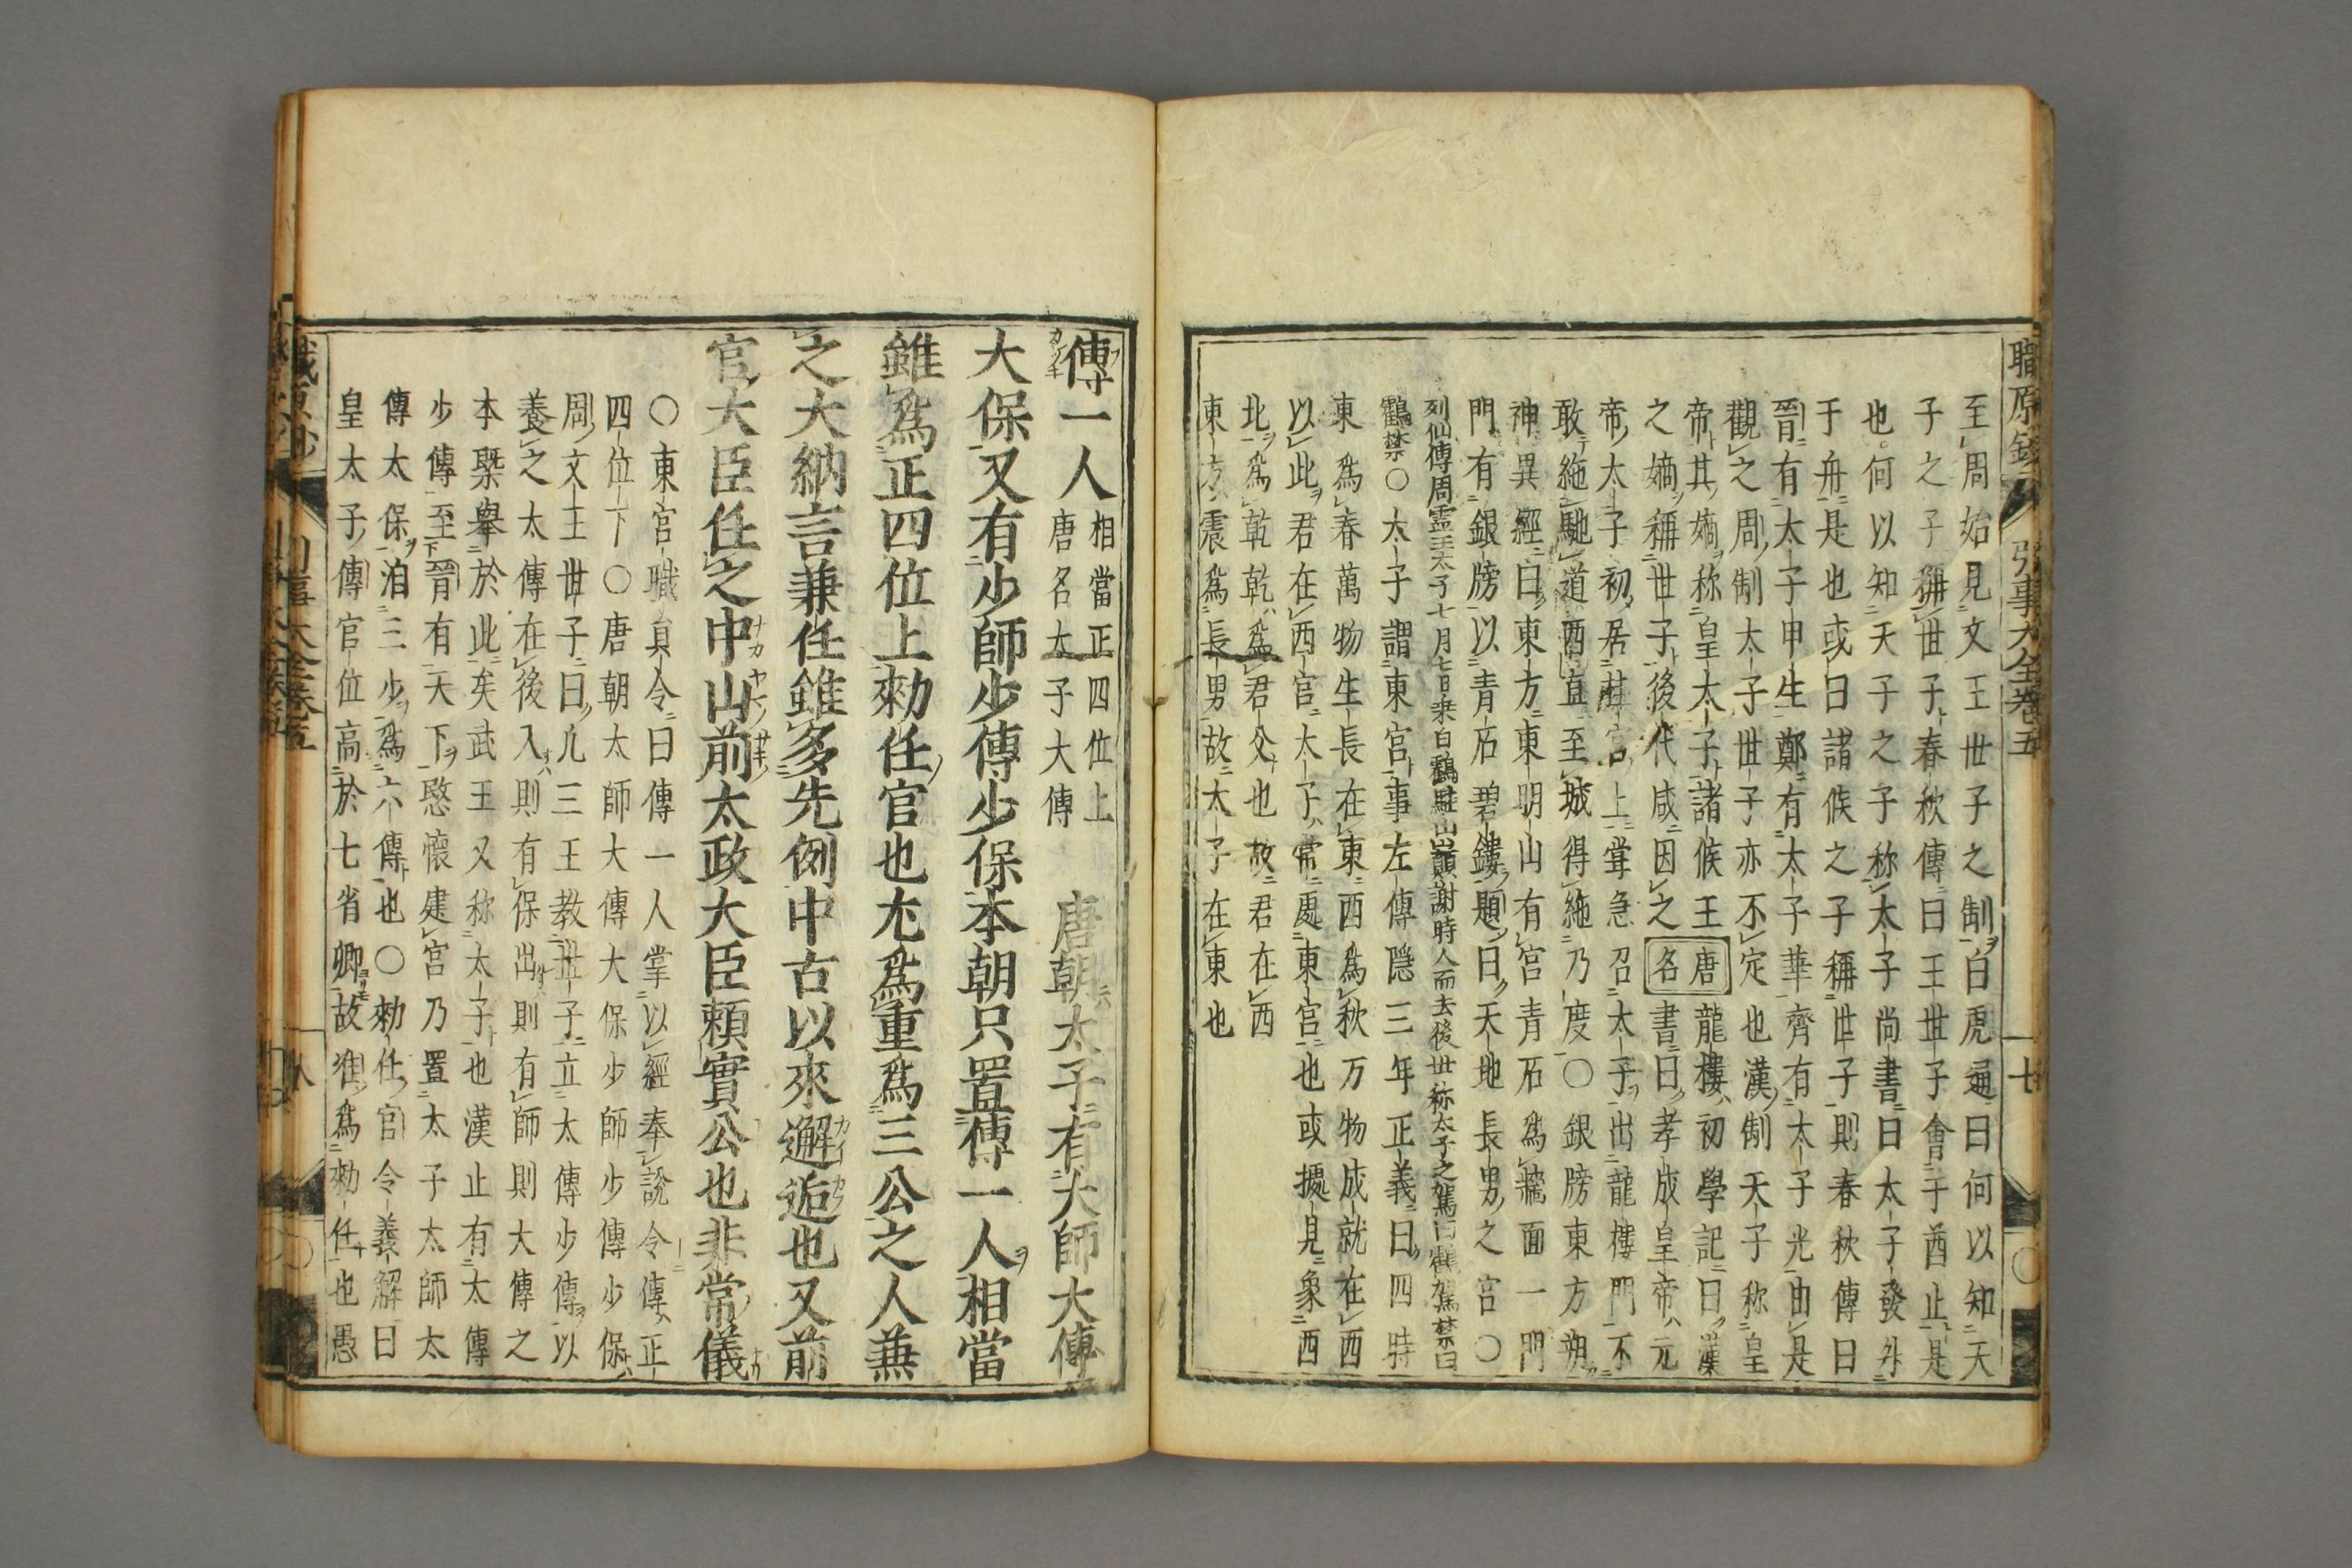 職原鈔 引事大全卷五 十七
至周始見文王世子之制白虎通曰何以知天
子之子稱世子春秋傳曰王世子會于首止是
也何以知天子之子称太子尚書曰太子發升
于舟是也或曰諸侯之子稱世子則春秋傳曰
晉有太子申生鄭有太子華齊有太子光由是
觀之周制太子世子亦不定也漢制天子称皇
帝其嫡称皇太子諸侯王
之嫡稱世子後代咸因之
唐名
龍樓初學記曰漢
書曰孝成皇帝元
帝太子初居桂宮上甞急召太子出龍樓門不
敢絶馳道西直至城得絶乃度〇銀牓東方朔
神異經曰東方東明山有宮青石爲牆面一門
門有銀牓以青石碧鏤題曰天地長男之宮〇
列仙傳周霊王太子七月七日乘白鶴駐山巓謝時人而去後世称太子之駕曰鶴駕禁曰
鶴禁〇太子謂東宮事左傳隠三年正義曰四時
東爲春萬物生長在東西爲秋万物成就在西
以此君在西宮太子常處東宮也或據見象西
北爲乾乾爲君父也故君在西
東方震爲長男故太子在東也
傅一人
相當正四位上
唐名太子大傅
唐朝太子有大師大傅
大保又有少師少傅少保本朝只置傅一人相當
雖爲正四位上勅任官也尤爲重爲三公之人兼
之大納言兼任雖多先例中古以來邂逅也又前
官大臣任之中山前太政大臣頼實公也非常儀
〇東宮職員令曰傅一人掌以經奉說令傅正
四位下〇唐朝太師大傅大保少師少傅少保
周文王世子曰凡三王教世子立太傅少傅以
養之太傅在後入則有保出則有師則大傅之
本槩舉於此矣武王又称太子也漢止有太傅
少傅至晉有天下愍懷建宮乃置太子太師太
傅太保洎三少爲六傅也〇勅任官令義解曰
皇太子傅官位高於七省卿故准爲勅任也愚